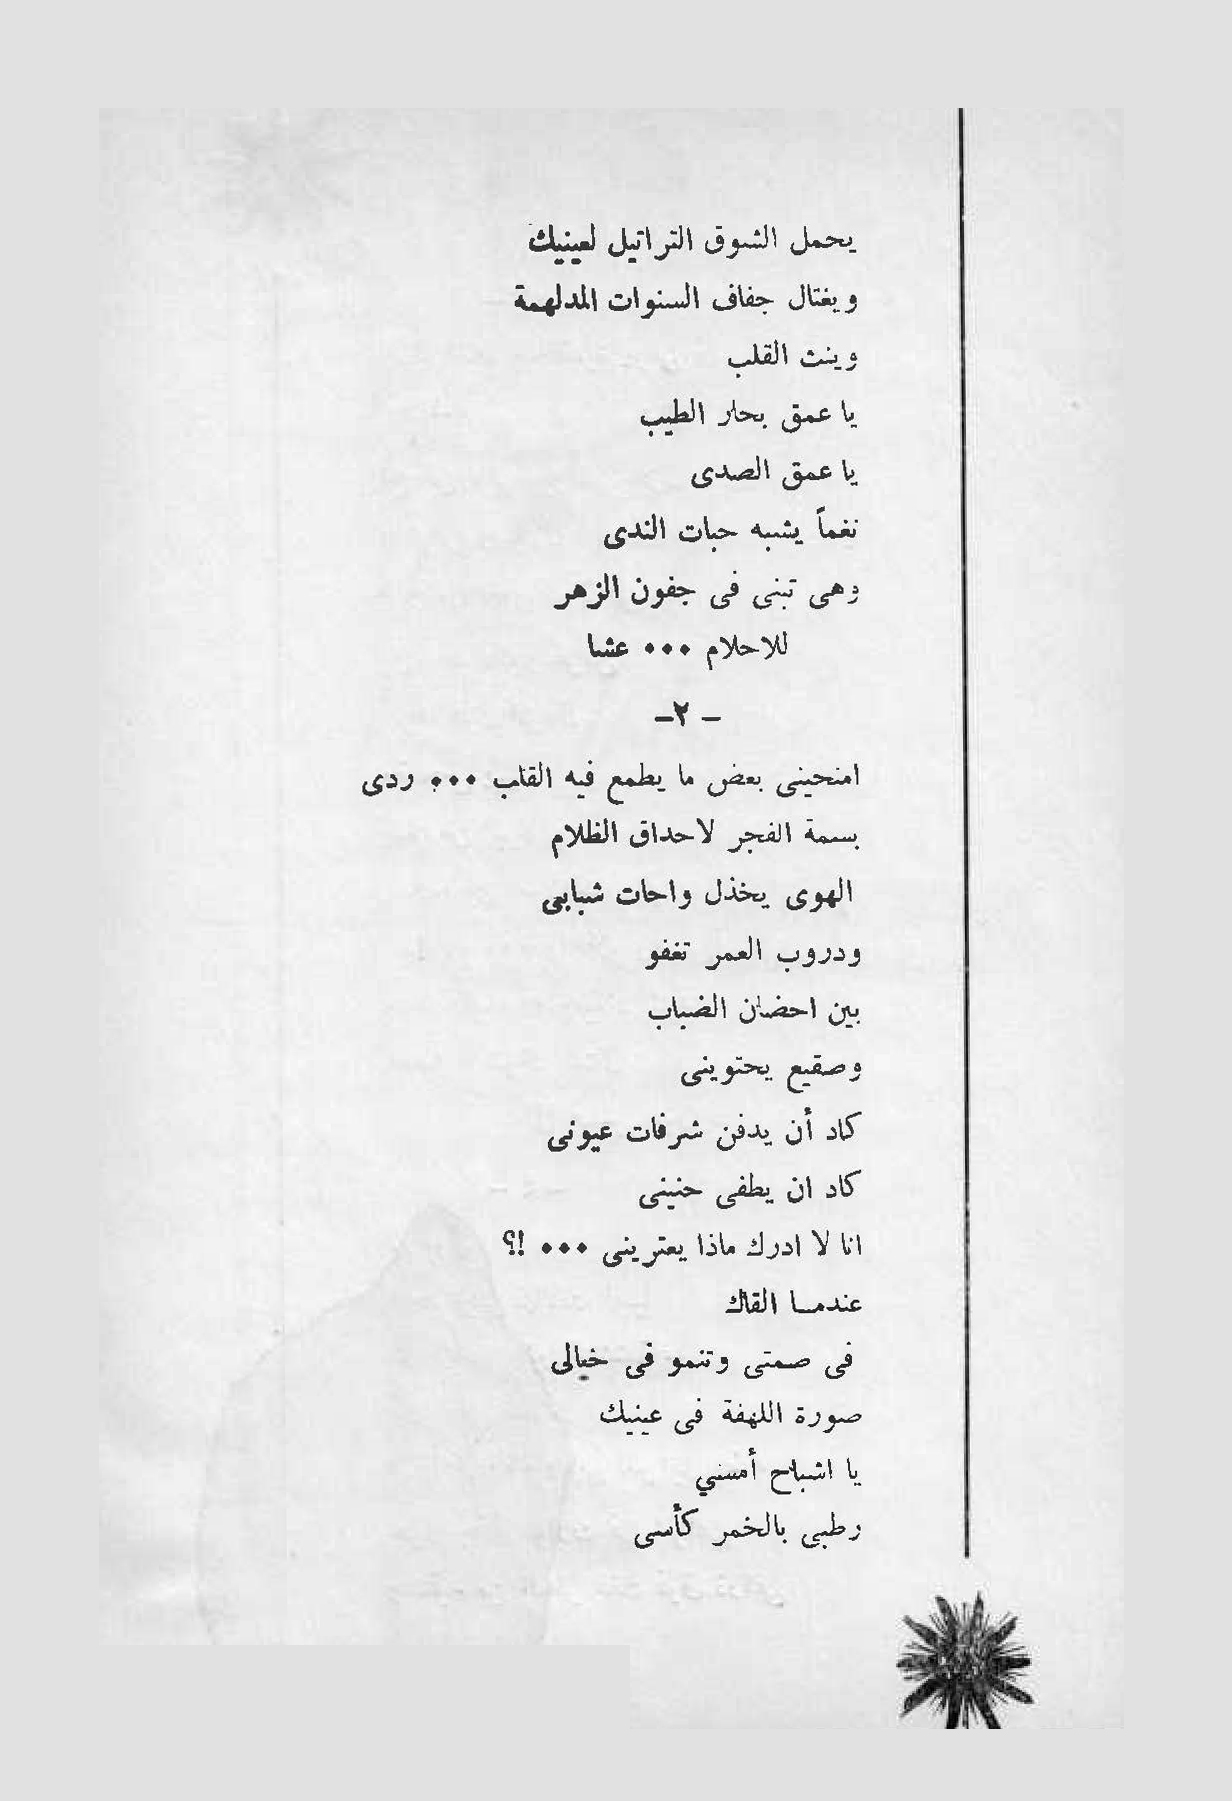 يحمل الشوق التراتيل لعينيك
ويغتال جفاف السنوات المدلهمة
وينث القلب
يا عمق بحار الطيب
يا عمق الصدى
نغماً يشبه حبات الندى
وهى تبنى فى جفون الزهر
للاحلام ••• عشا
- ٢-
امنحينى بعض ما يطمع فيه القلب ••• ردى
بسمة الفجر لاحداق الظلام
الهوى يخذل واحات شبابى
ودروب العمر تغفو
بين احضان الضباب
وصقيع يحتوينى
كاد أن يدفن شرفات عيونى
كاد ان يطفى حنينى
انا لا ادرك ماذا يعترينى ••• !؟
عندمـا القاك
فى صمتى وتنمو فى خيالى
صورة اللهفة فى عينيك
يا اشباح أمسي
رطبى بالخمر كأسى